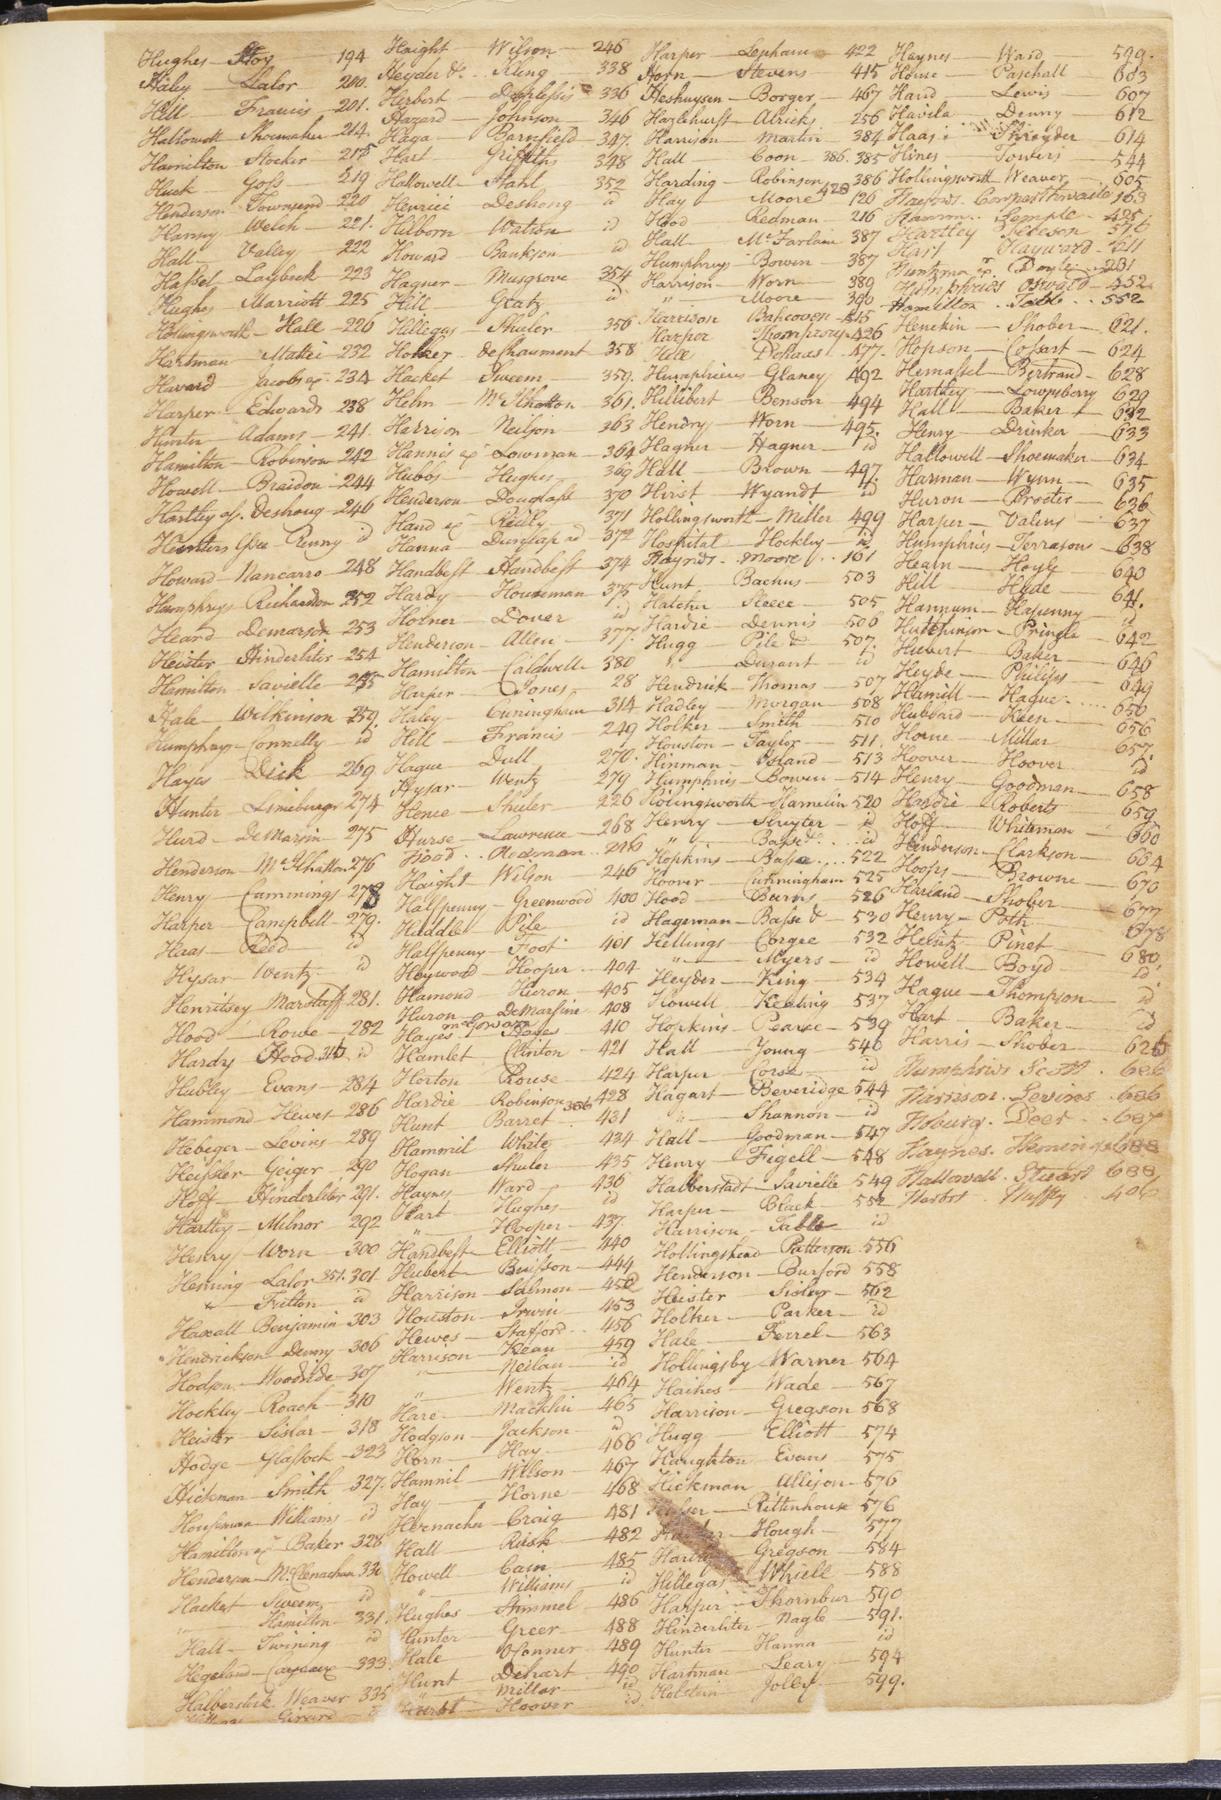 Hughes — Hoy — 194
Haley — Lalor — 200.
Hill — Francis — 201.
Hallowell — Shoemaker — 214.
Hamilton — Stocker — 217
Huck — Goss — 219
Henderson — Townsend — 220
Harvey — Welch — 221.
Hall — Valley — 222
Hassel — Laybeck — 223
Hughes — Marriott — 225
Hollingsworth — Hall — 226
Hartman — Mattei — 232
Havard — Jacobs ex. — 234
Harper — Edwards — 238
Hunter — Adams — 241.
Hamilton — Robinson — 242
Howell — Braidon — 244
Hartley as. Deshong — 246
Hunters Exx — Renny id
Howard — Nancarro — 248
Humphreys Richardson 252
Heard Demarson — 253
Heister Hinderliter — 254
Hamilton Savielle — 255
Hale — Wilkinson — 259.
Humphreys — Connelly — id
Hayes Dick 269
Hunter — Limeburger 274
Hurd — DeMarsin — 275
Henderson McIlhatton 276
Henry — Cammings 278
Harper Campbell — 279.
Haas — Reed — id
Hysar Wentz — id
Henritsey Marstaff 281.
Hood — Rowe — 282
Hardy Hood 315. id
Hubley — Evans — 284
Hammond — Hewes — 286
Hebeger — Levins — 289
Heissler Geiger — 290
Hoff Hinderliter 291.
Hartley — Milnor — 292
Henry — Worn — 300
Hening — Lalor 351. 301.
" — Fritton — id
Haxall — Benjamin — 303
Hendrickson — Denny — 306
Hodson — Woodside — 307
Hockley — Roach — 310
Heister — Sislar — 318
Hodge — Glassock — 323
Hickman — Smith — 327.
Housman — Williams id
Hamilton ex — Baker 328
Henderson — McClenachan 330
Hacket Sweem id
" Hamilton — 331.
Hall — Twining id
Hegeland — 333
Halberstadt Weaver 335
Girard
Haight — Wilson — 246
Heyder &c. — Kling 338
Herbert — Duplessis — 336
Hazard — Johnson — 346
Haga — Barnfield — 347.
Hart Griffiths 348
Hallowell — Stahl 352
Henrice — Deshong id
Hilborn — Watson id
Howard — Bankson id
Hagner — Musgrove 354
Hill Gratz id
Hillegas — Shuler 356
Holker — deChaument — 358
Hacket — Sweem — 359.
Helm — McIlhatton — 361.
Herrison — Neilson — 363
Hannis ex — Lowman — 364
Hubbs — Hughes — 369
Henderson — Douglass 370
Hand ex — Reilly 371
Hanna — Dunlap ad — 372
Handbest — Handbest — 374
Hardy — Houseman 375
Holner — Dover id
Henderson — Allen — 377.
Hamilton — Caldwell — 380
Harper — Jones 28
Haley — Cuningham — 314
Hill — Francis 249
Hague — Dull 270.
Hysar — Wentz 279
Hence — Shuler 226
Hurse Lawrence — 268
Hood . . Redman 246
Haight — Wilson 246
Halfpenny — Greenwood 400
Haddle — Pile id
Halfpenny — Foot — 401
Heywood — Hooper — 404
Hamond — Huron — 405
Huron — DeMarsine 408
Hayes McGowan 410
Hamlet — Clinton — 421
Horton — Rouse 424
Hardie — Robinson 386. 428
Hunt Barret — 431
Hammil White — 434
Hogan — Shuler 435
Hayns — Ward — 436
Hart Hughes id
" — Hooper — 437.
Handbest — Elliott — 440
Hubert — Busson — 444
Harrison — Salmon — 450
Houston — Irwin — 453
Hewes — Stafford — 456
Harrison — Kean 459
" — Neilan — id
" Wentz 464
Hare — Macklin — 465
Hodgson — Jackson id
Horn — Hay — 466
Hamnil — Wilson — 467
Hay — Horne — 468
Hevenacher — Craig — 481
Hall — Rush — 482
Howell — Cain — 485
" — Williams id
Hughes — Stimmel 486
Hunter — Greer — 488
Hale OConner 489
Hunt Dehart — 490
" Millar id
Hoover id
Harper — Lapham — 422
Horn — Stevens 415
Heshuysen — Borger — 467
Hazlehurst — Alricks 256
Harrison — Martin 384
Hall Coon — 386. 385
Harding — Robinson 428 386
Hay — Moore 120
Hood Redman — 216
Hall — McFarlan 387
Humphreys Bowen 387
Harrison — Worn — 389
" — Moore — 390
Harrison Bancoven 415
Harper Thompson 426
Hill DeHaas 477.
Humphries — Glaney 492
Hillibert Benson 494
Hendry — Worn — 495.
Hagner — Hagner — id
Hall — Brown — 497.
Hirst — Wyandt id
Hollingsworth — Miller 499
Hospital — Hockley — id
Haynds. Moore . . 161
Hunt Bachus — 503
Hatcher Sleece — 505
Hardie — Dennis 506
Hugg Pile &c 507.
" — Durant id
Hendrick — Thomas — 507
Hadley — Morgan — 508
Holker Smith 510
Houston — Taylor — 511.
Hinman — Island — 513
Humphries — Bowen — 514
Hollingsworth — Hamelin 520
Henry — Sluyter — id
" — Basse &c. id
Hopkins — Bassa — 522
Hoover Cunningham 525
Hood — Burns 526
Hageman — Basse & — 530
Hellings — Corgee — 532
" — Myers — id
Heyder — King — 534
Howell — Keeting 537
Hopkins — Pearce — 539
Hall — Young — 540
Harper — Corse — id
Hagart — Beveridge 544
" — Shannon — id
Hall — Goodman — 547
Henry — Figell — 548
Halberstadt — Savielle 549
Harper — Black — 552
Harrison — Table id
Hollingshead Patterson 556
Henderson — Burford 558
Heister — Sisler — 562
Holker — Parker — id
Hale — Ferrel — 563
Hollingsby Warner 564
Haines — Wade — 567
Harrison — Gregson 568
Hugg — Elliott — 574
Haughton — Evans 575
Hickman Allison — 576
Rittenhouse 576
Hough — 577
Hardy Gregson — 584
Hillegas — Whiell — 588
Harper — Thornbur 590
Hinderliter — Nagle — 591.
Hunter Hanna id
Hartman — Leary — 594
Holstein Jolly — 599.
Haynes — Ward — 599.
Howe — Paschall 603
Hand Lewis — 607
Havila Denny — 612
Haas — Shrieder 614
Hines — Towers 544
Hollingsworth Weaver 605
Haydns. Compasthwaite 163
Hannon . Semple . 425
Hartley Peterson 576
Hart Hayward 211
Huntzman ex Doyle 231
Humphries Oswald 452
Hamilton . Table . 552
Henekin — Shober — 621.
Hopson — Cossart — 624
Hemassel — Bertrand — 628
Hartley — Lownsberry 629
Hall — Baker — 632
Henry — Drinker — 633
Hallowell — Shoemaker — 634
Harman — Wynn — 635
Huron — Procter — 636
Harper — Valens — 637
Humphries — Terrasons — 638
Hearn — Hoyle 640
Hill Hyde 641.
Hannum — Hapenny id
Hutchinson — Pringle — 642
Hubert — Baker — 646
Heyde — Philips — 649
Hamill — Hague 650
Hubbard — Keen — 656
Horne — Millar 657.
Hoover — Hoover id
Henry — Goodman — 658
Hardie — Roberts 659
Hoff — Whiteman — 660
Henderson — Clarkson — 664
Hoops — Browne — 670
Harland — Shober 677
Henry — Poth 678
Heintz — Pinet — 680.
Howell — Boyd id
Hague — Thompson — id
Hart — Baker — id
Harris — Shober — 625
Humphries Scott . 686
Harrison . Levins . 686
Hoburg . Deer . . 687
Haynes. Hemings 688
Hallowell . Stuart 688
Herbst . Haffly 406